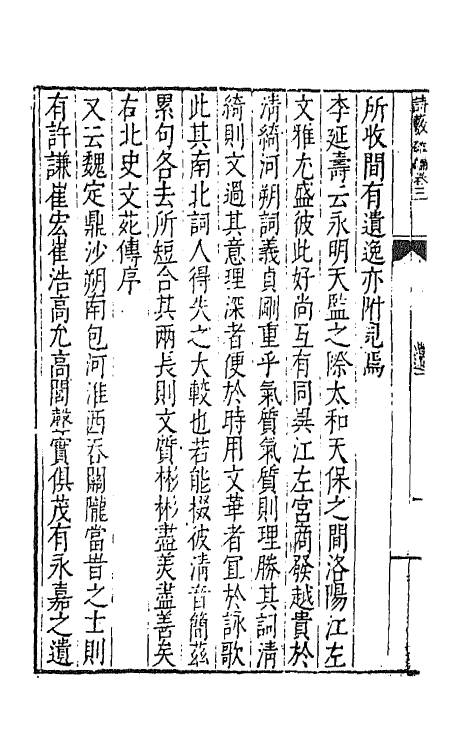 詩藪雜編卷三
所收間有遺逸亦附見焉
李延壽云永明天監之際太和天保之間洛陽江左
文雅尤盛彼此好尚互有同異江左宮商發越貴於
清綺河朔詞義貞剛重乎氣質氣質則理勝其詞清
綺則文過其意理深者便於時用文華者宜於詠歌
此其南北詞人得失之大較也若能掇彼清音簡茲
累句各去所短合其兩長則文質彬彬盡美盡善矣
右北史文苑傳序
又云魏定鼎沙朔南包河淮西吞關隴當昔之士則
有許謙崔宏崔浩高允高閭聲實俱茂有永嘉之遺